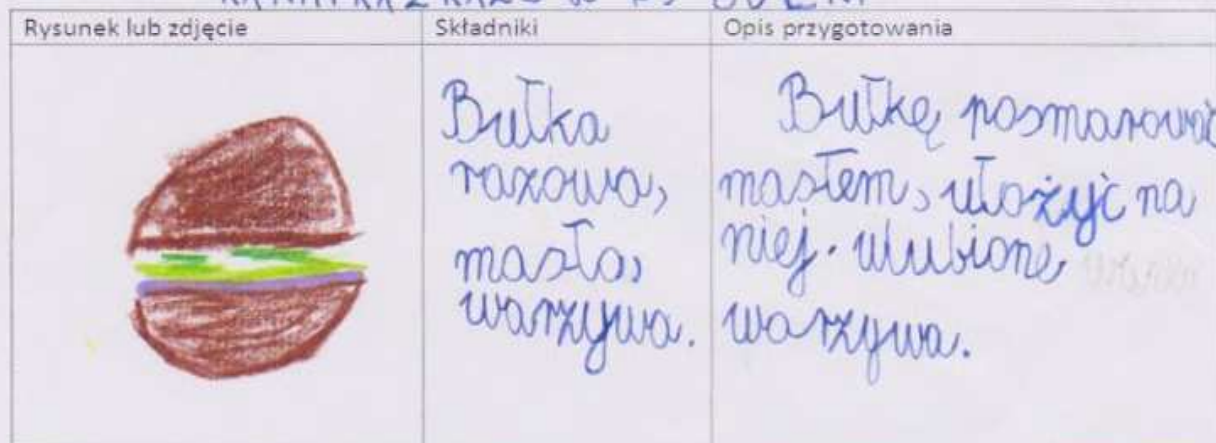 Rysunek lub zdjęcie
Składniki
Opis przygotowania
Bułka
razowa,
masło,
warzywa.
Bułkę posmarować
masłem, ułożyć na
niej. ulubione
warzywa.